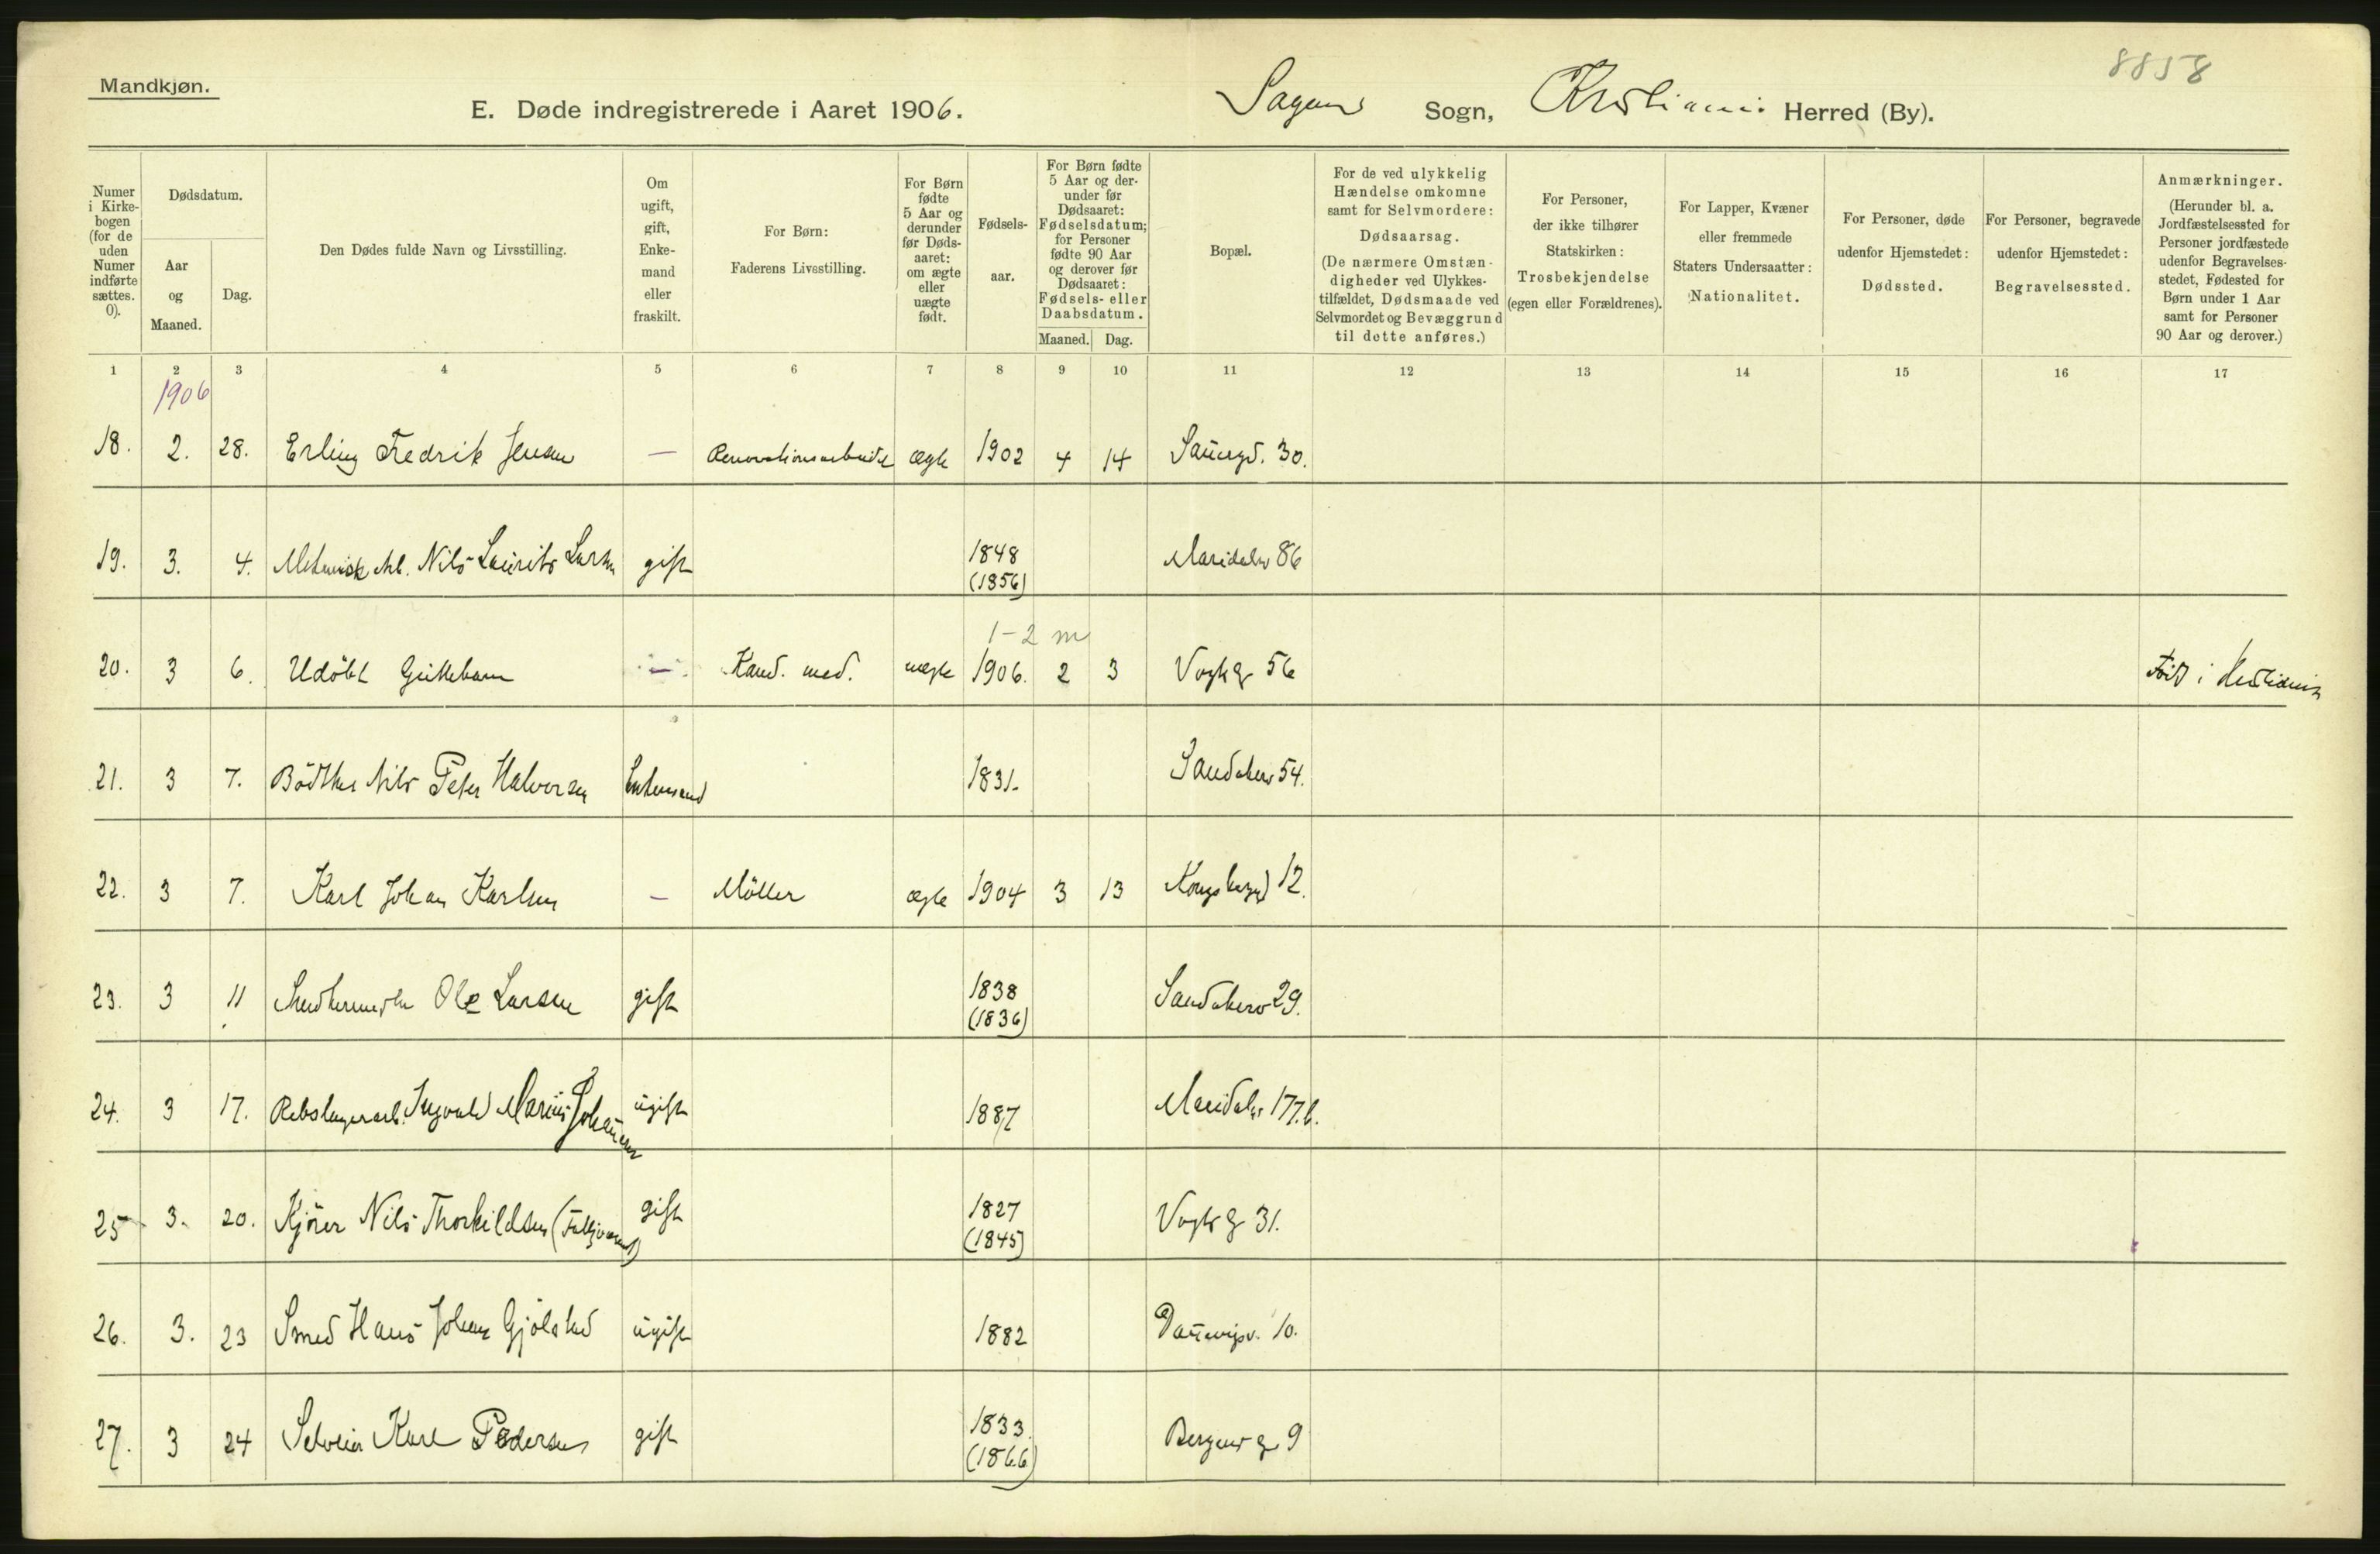 8858
Mandkjøn.
E. Døde indregistrerede i Aaret 1906. Sagene Sogn, Kristiania Herred (By).
Numer i Kirkebogen (for de uden Numer indførte sættes. 0).
Dødsdatum.
Aar og Maaned.
Dag.
Den Dødes fulde Navn og Livsstilling.
Om ugift, gift, Enkemand eller fraskilt.
For Børn: Faderens Livsstilling.
For Børn fødte 5 Aar og derunder før Dødsaaret: om ægte eller uægte født.
Fødselsaar.
For Børn fødte 5 Aar og derunder før Dødsaaret: Fødselsdatum; for Personer fødte 90 Aar og derover før Dødsaaret: Fødsels- eller Daabsdatum.
Maaned. Dag.
Bopæl.
For de ved ulykkelig Hændelse omkomne samt for Selvmordere: Dødsaarsag. (De nærmere Omstændigheder ved Ulykkestilfældet, Dødsmaade ved Selvmordet og Bevæggrund til dette anføres.)
For Personer, der ikke tilhører Statskirken: Trosbekjendelse (egen eller Forældrenes).
For Lapper, Kvæner eller fremmede Staters Undersaatter: Nationalitet.
For Personer, døde udenfor Hjemstedet: Dødssted.
For Personer, begravede udenfor Hjemstedet: Begravelsessted.
Anmærkninger. (Herunder bl. a. Jordfæstelsessted for Personer jordfæstede udenfor Begravelsesstedet, Fødested for Børn under 1 Aar samt for Personer 90 Aar og derover.)
1 2 3 4 5 6 7 8 9 10 11 12 13 14 15 16 17
1906
18. 2. 28. Erling Fredrik Jensen — Renovationsarbeider ægte 1902 4 14 30.
19. 3. 4. Nils Laurits Larsen gift 1848 (1856) Maridalsv 86
1-2 m
20. 3 6. Udöbt Guttebarn — Kand. med. uægte 1906. 2 3 Vogts g 56 Föd i Kristiania
21. 3 7. Bödtker Nils Peter Halvorsen Enkemand 1831. Sandakerv 54.
22. 3 7. Karl Johan Karlsen — Möller ægte 1904 3 13 12.
23. 3 11 Ole Larsen gift 1838 (1836) Sandakerv 29.
24. 3 17. Rebslagerarb. Ingvald Marius Johansen ugift 1887 Maridalsv 177.b.
25 3. 20. Kjörer Nils Thorkildsen gift 1827 (1845) Vogts g 31.
26. 3. 23 Smed Hans Johan Gjölstad ugift 1882 10.
27. 3 24 Karl Pedersen gift 1833. (1866) Bergens g 9